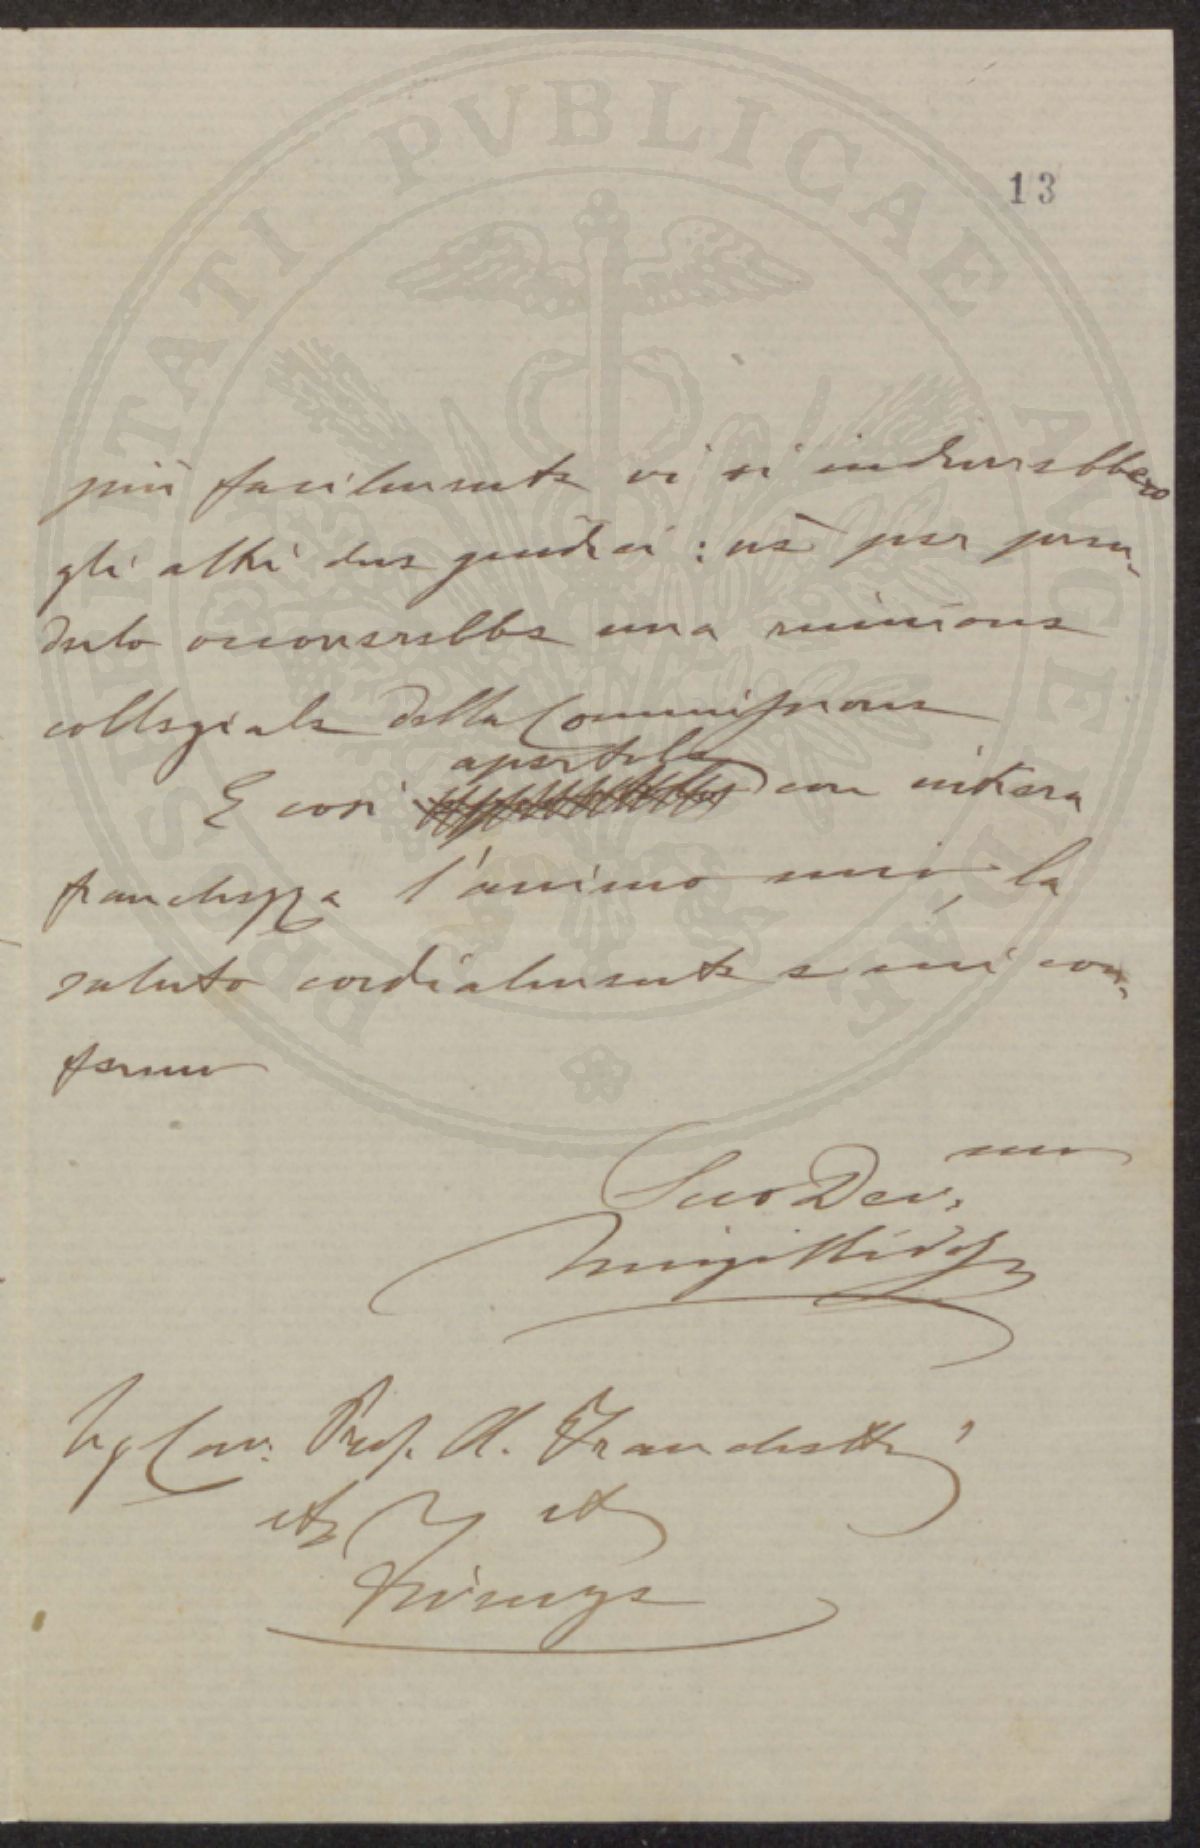 13
più facilmente vi si indurrebbero
gli altri due giudici: nè per pren-
derlo occorrerebbe una riunione
collegiale della Commissione
E così apertole con intiera
franchezza l'animo mio, la
saluto cordialmente e mi con-
fermo
Suo Dev.mo
Luigi
Sig Cav. Prof. A. Franchetti
etc etc
Firenze
PROSPERITATI PVBLICAE AVGENDAE